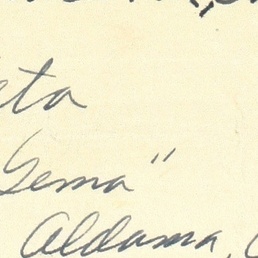 eta
Gema"
Aldama,